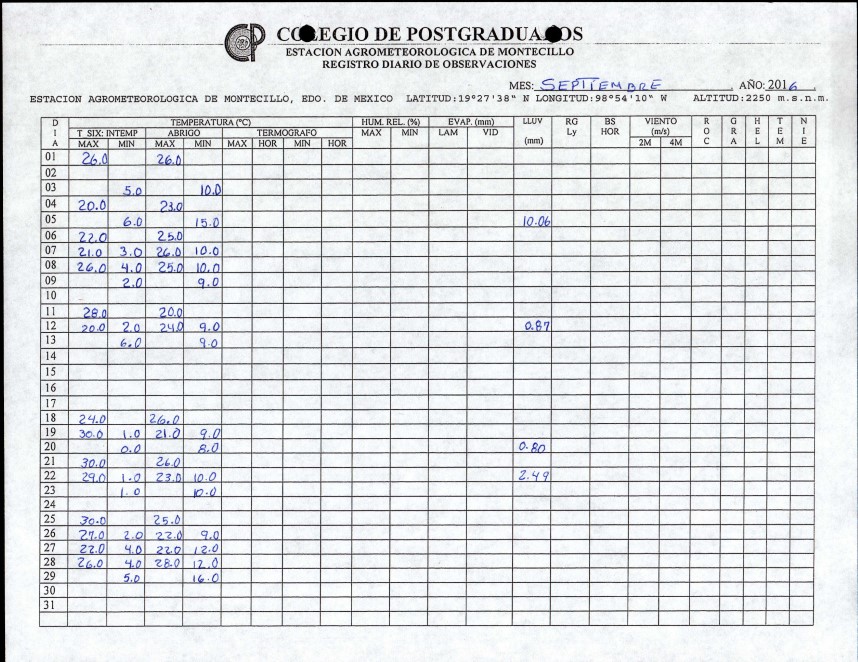 CP COLEGIO DE POSTGRADUADOS
ESTACION AGROMETEOROLOGICA DE MONTECILLO
REGISTRO DIARIO DE OBSERVACIONES
MES: SEPTIEMBRE AÑO: 2016
ESTACION AGROMETEOROLOGICA DE MONTECILLO, EDO. DE MEXICO LATITUD:19°27'38" N LONGITUD:98°54'10" W ALTITUD:2250 m.s.n.m.
DIA TEMPERATURA (°C) HUM. REL. (%) EVAP. (mm) LLUV (mm) RG Ly BS HOR VIENTO (m/s) ROC GRA HEL TEM NIE
T SIX: INTEMP ABRIGO TERMOGRAFO MAX MIN LAM VID
MAX MIN MAX MIN MAX HOR MIN HOR 2M 4M
01 26.0 26.0
02
03 5.0 10.0
04 20.0 23.0
05 6.0 15.0 10.06
06 22.0 25.0
07 21.0 3.0 26.0 10.0
08 26.0 4.0 25.0 10.0
09 2.0 9.0
10
11 28.0 20.0
12 20.0 2.0 24.0 9.0 0.87
13 6.0 9.0
14
15
16
17
18 24.0 26.0
19 30.0 1.0 21.0 9.0
20 0.0 8.0 0.80
21 30.0 26.0
22 29.0 1.0 23.0 10.0 2.49
23 1.0 10.0
24
25 30.0 25.0
26 27.0 2.0 22.0 9.0
27 22.0 4.0 22.0 12.0
28 26.0 4.0 28.0 12.0
29 5.0 16.0
30
31